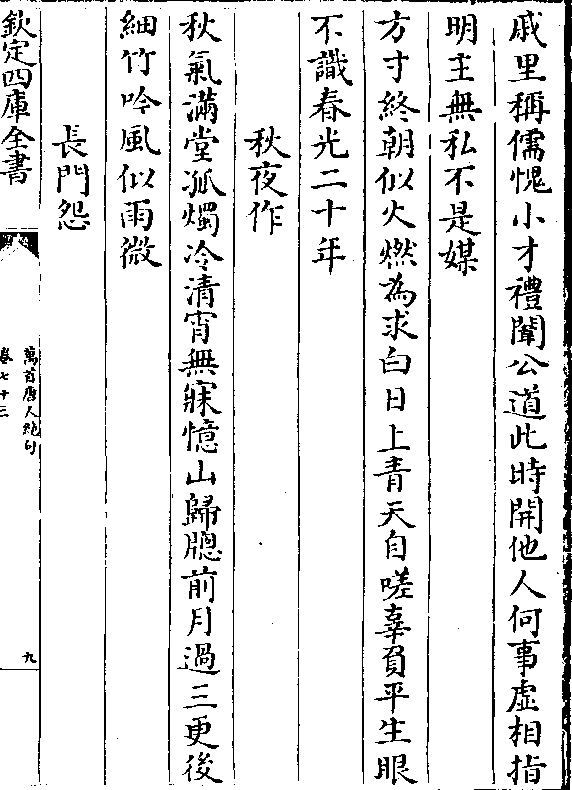 戚里稱儒愧小才禮闈公道此時開他人何事虛相指
明主無私不是媒
方寸終朝似火燃為求白日上青天自嗟辜負平生眼
不識春光二十年
秋夜作
秋氣滿堂孤燭冷清宵無寐憶山歸牕前月過三更後
細竹吟風似雨微
長門怨
欽定四庫全書
萬首唐人絶句
卷七十三
九